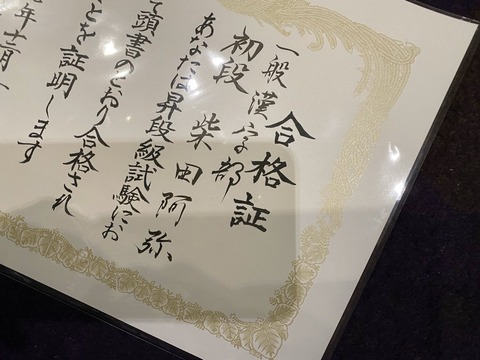 合格証
一般漢字部
初段 柴田阿弥
あなたは昇段級試験にお
て頭書のとおり合格され
ことを証明します
年十二月一